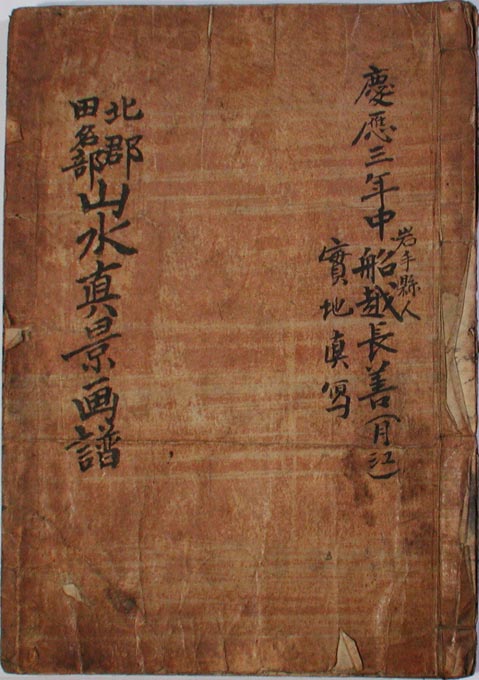 慶應三年中船越長善(月江)
岩手縣人
實地眞写
北郡
田名部
山水真景画譜